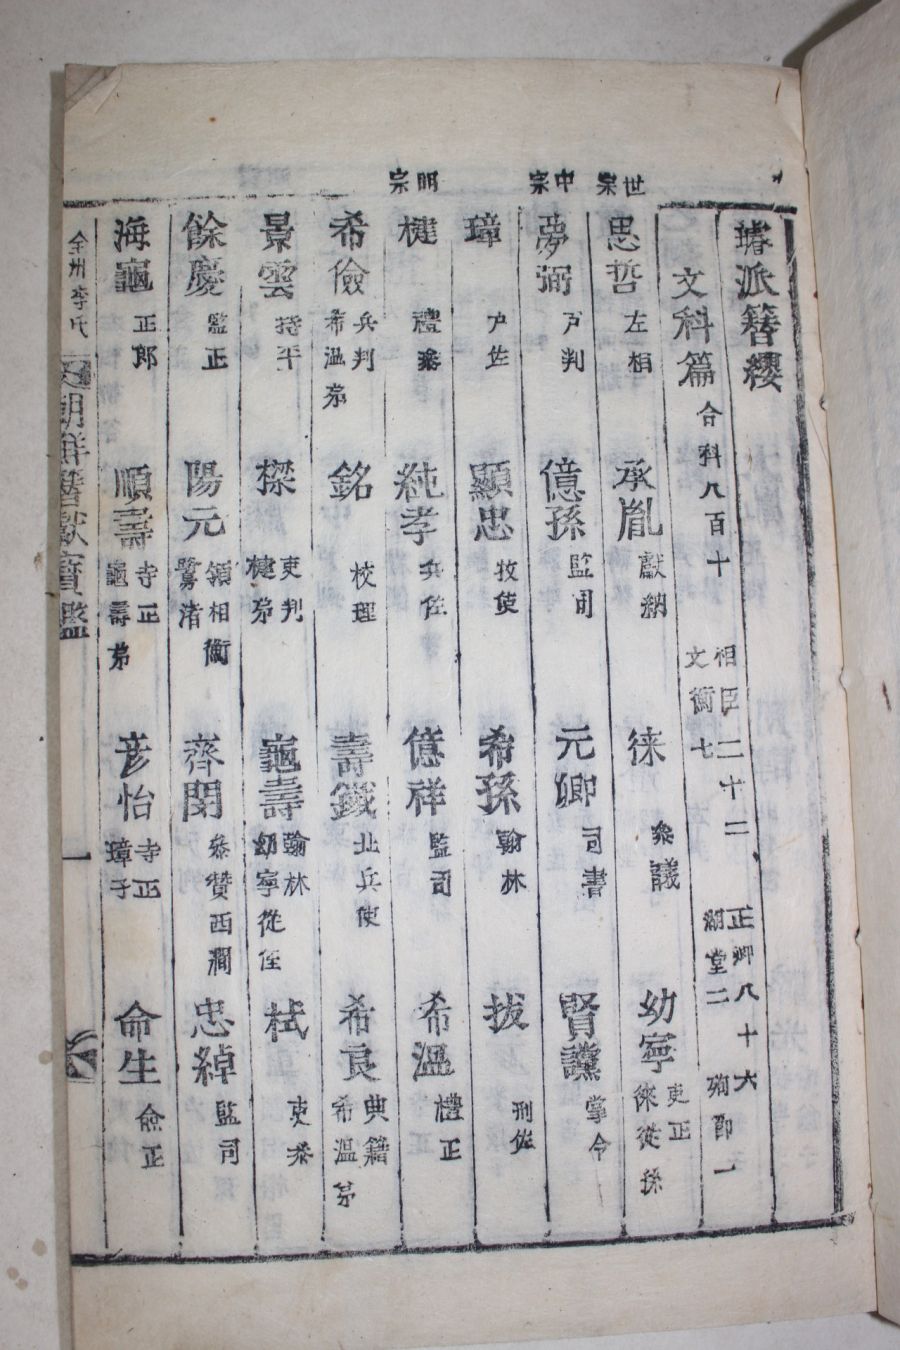 璿派簪纓
文科篇 合科八百十 相臣二十二 文衡七 正卿八十六 湖堂二 殉節一
世宗
思哲 左相 承胤 獻納 徠 參議 幼寧 吏正 徠從孫
中宗
夢弼 戶判 億孫 監司 元卿 司書 賢讜 掌令
璋 戶佐 顯忠 牧使 希孫 翰林 拔 刑佐
明宗
楗 禮參 純孝 兵佐 億祥 監司 希溫 禮正
希儉 兵判 希溫弟 銘 校理 壽鐵 北兵使 希良 典籍 希溫弟
景雲 持平 樑 吏判 楗弟 龜壽 翰林 幼寧從侄 栻 吏參
餘慶 監正 陽元 領相 衡 鷺渚 齊閔 參贊 西澗 忠綽 監司
海龜 正郎 順壽 寺正 龜壽弟 彦怡 寺正 璋子 命生 僉正
全州李氏 朝鮮簪獻寶鑑 一